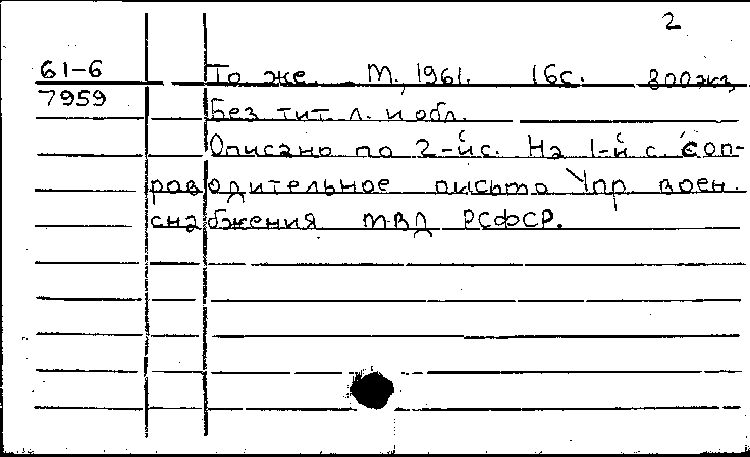 2
61-6 То же. М., 1961. 16с. 800экз.
7959 Без тит. л. и обл.
Описано по 2-й с. На 1-й с. соп-
роводительное письмо Упр. воен.
снабжения МВД РСФСР.